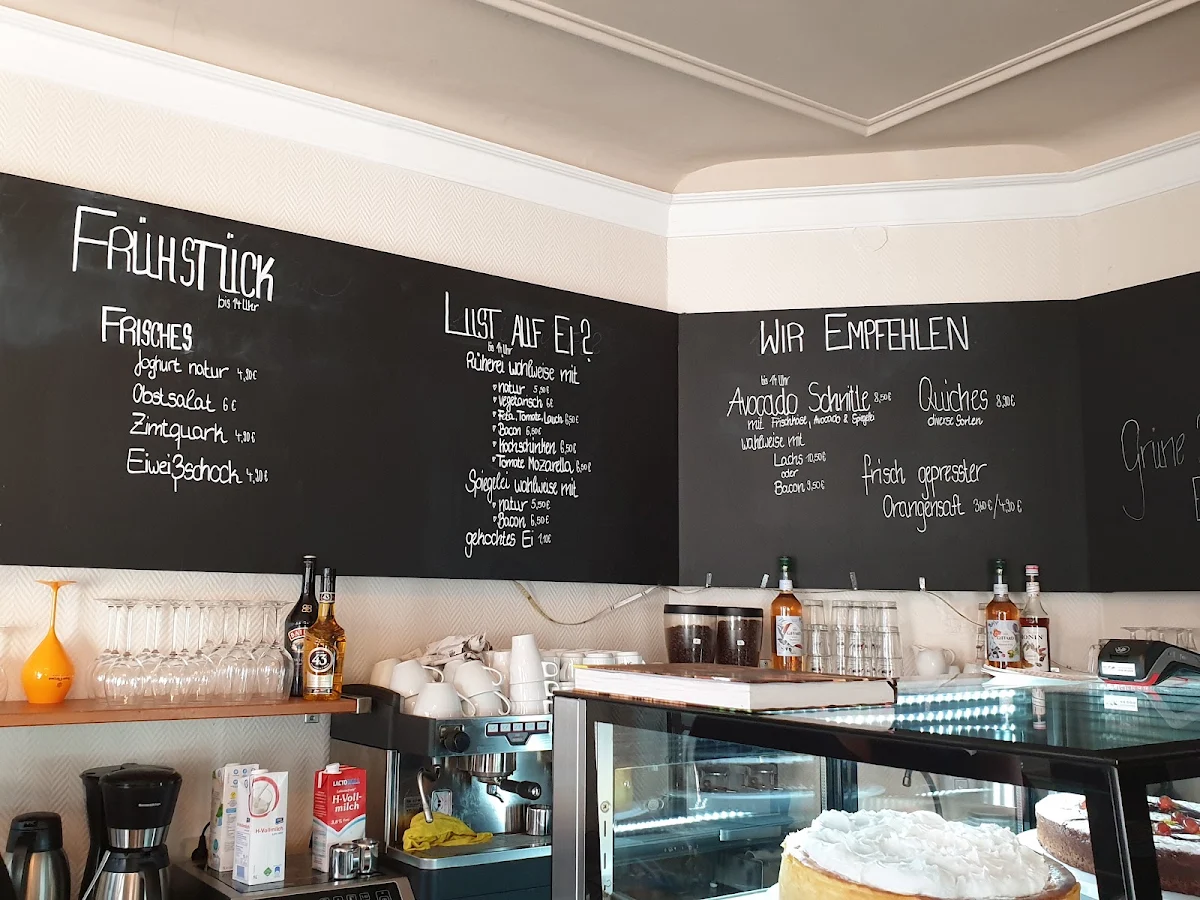 FRÜHSTÜCK
bis 14 Uhr
FRISCHES
Joghurt natur 4,90€
Obstsalat 6€
Zimtquark 4,90€
Eiweißschock 4,90€
LUST AUF EI?
bis 14 Uhr
Rührei wahlweise mit
natur 5,50€
vegetarisch 6€
Feta, Tomate, Lauch 6,50€
Bacon 6,50€
Kochschinken 6,50€
Tomate Mozarella 6,50€
Spiegelei wahlweise mit
natur 5,50€
Bacon 6,50€
gekochtes Ei 1,10€
WIR EMPFEHLEN
bis 14 Uhr
Avocado Schnitte 8,50€
mit Frischkäse, Avocado & Spiegelei
wahlweise mit
Lachs 10,50€
oder
Bacon 9,50€
Quiches 8,90€
diverse Sorten
frisch gepresster
Orangensaft 3,60€/4,90€
Grüne
43
LACTO
H-Voll-
milch
3,8% Fett
H-Vollmilch
MONIN